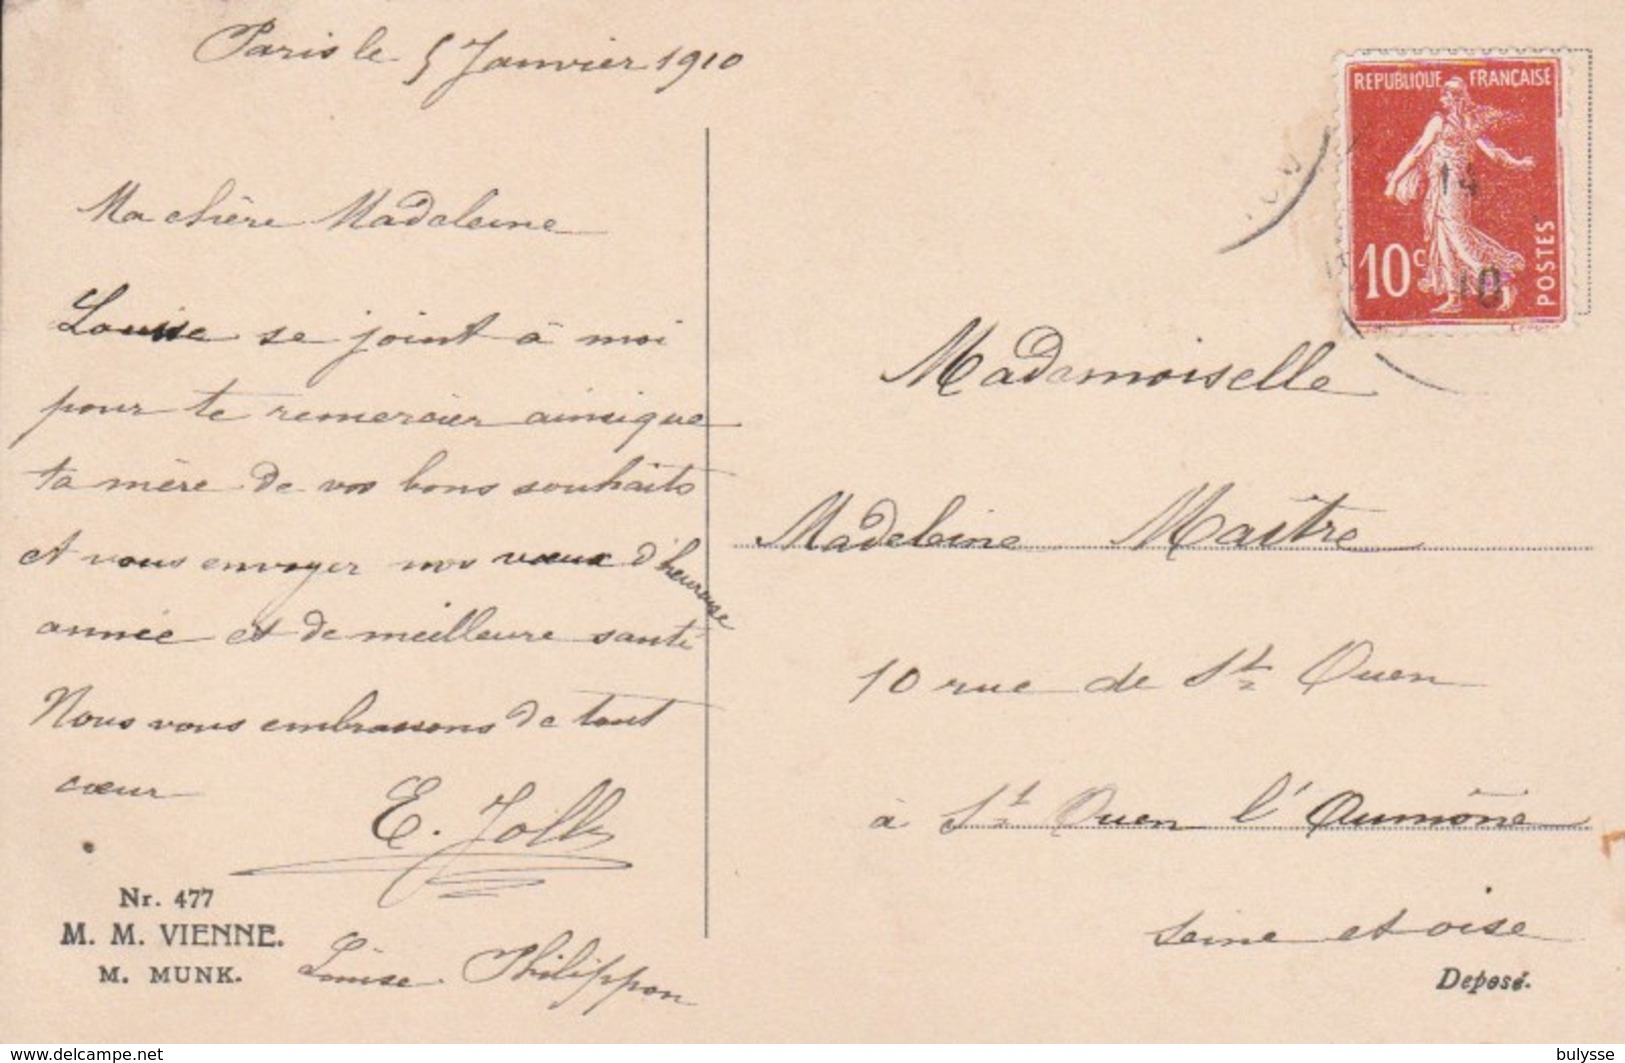 Paris le 5 Janvier 1910
Ma chère Madeleine
Louise se joint à moi
pour te remercier ainsi que
ta mère de vos bons souhaits
et vous envoyer nos vœux d'heureuse
année et de meilleure santé
Nous vous embrassons de tout
cœur
E. Jolly
Louise Philippon
Nr. 477
M. M. VIENNE.
M. MUNK.
REPUBLIQUE FRANÇAISE
10c
POSTES
14
10
Mademoiselle
Madeleine Maître
10 rue de St Ouen
à St Ouen l'Aumône
Seine et oise
Deposé.
www.delcampe.net
bulysse